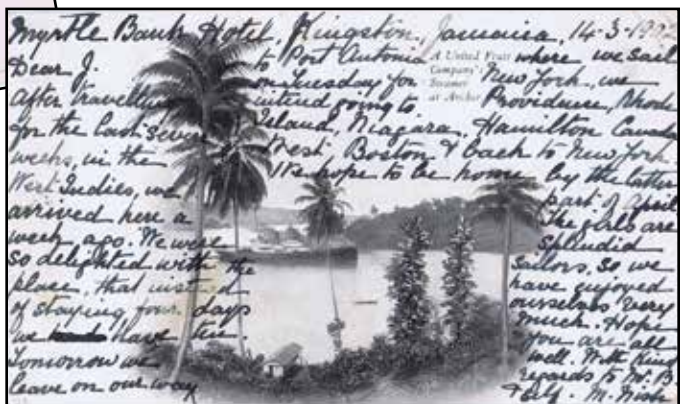 Myrtle Bank Hotel, Kingston, Jamaica, 14-3-
Dear J.
After travelling
for the last seven
weeks, in the
West Indies, we
arrived here a
week ago. We were
so delighted with the
place, that instead
of staying four days
we have ten.
Tomorrow we
leave on our way
to Port Antonia where we sail
on Tuesday for New York, we
intend going to Providence, Rhode
Island, Niagara, Hamilton Canada
West Boston & back to New York.
We hope to be home by the latter
part of April
The girls are
splendid
sailors, so, we
have enjoyed
ourselves very
much. Hope
you are all
well. With kind
regards to W. B.
& M.
A United Fruit
Company's
Steamer
at Anchor